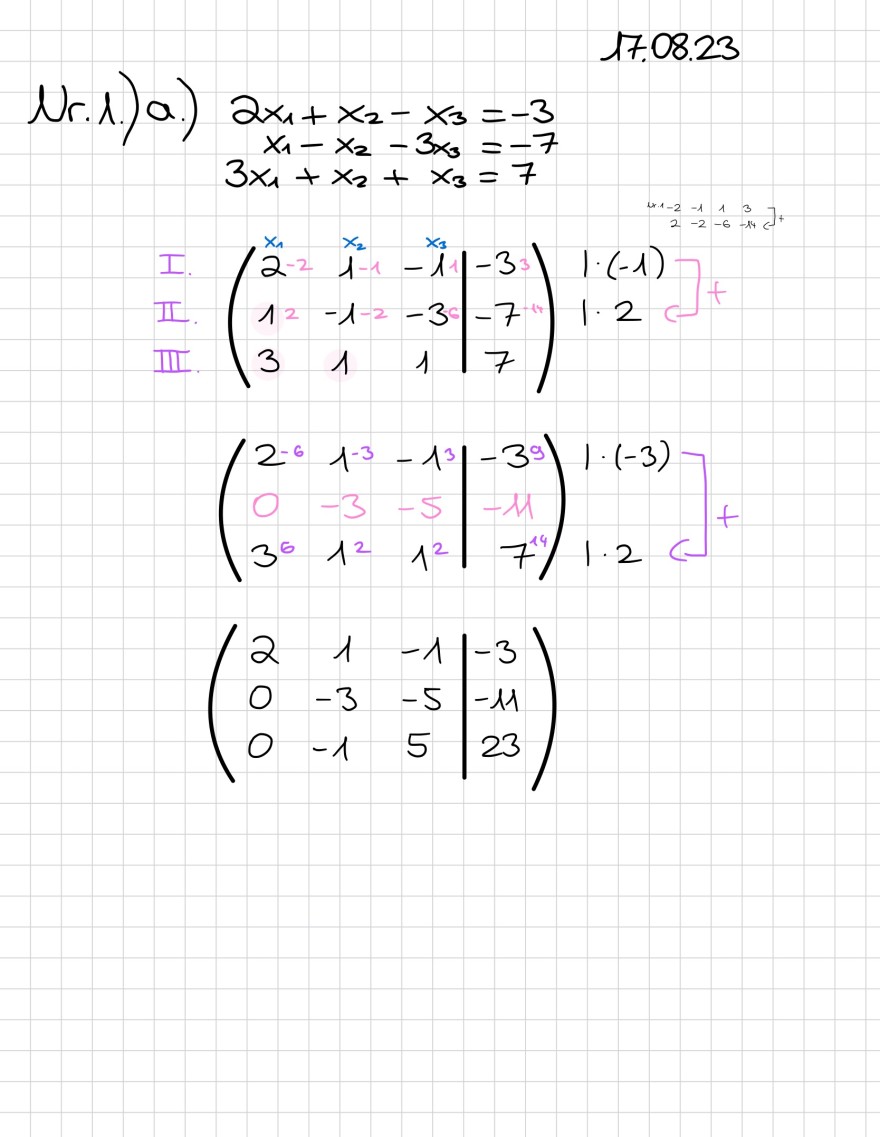 17.08.23
Nr. 1.) a.) 2x₁ + x₂ - x₃ = -3
x₁ - x₂ - 3x₃ = -7
3x₁ + x₂ + x₃ = 7
Nr.1 -2 -1 1 3 +
2 -2 -6 -14
x₁ x₂ x₃
I. 2 -2 1 -1 -1 1 | -3 3 | · (-1)
II. 1 2 -1 -2 -3 -6 | -7 -14 | · 2 +
III. 3 1 1 | 7
2 -6 1 -3 -1 3 | -3 9 | · (-3)
0 -3 -5 | -11 +
3 6 1 2 1 2 | 7 14 | · 2
2 1 -1 | -3
0 -3 -5 | -11
0 -1 5 | 23